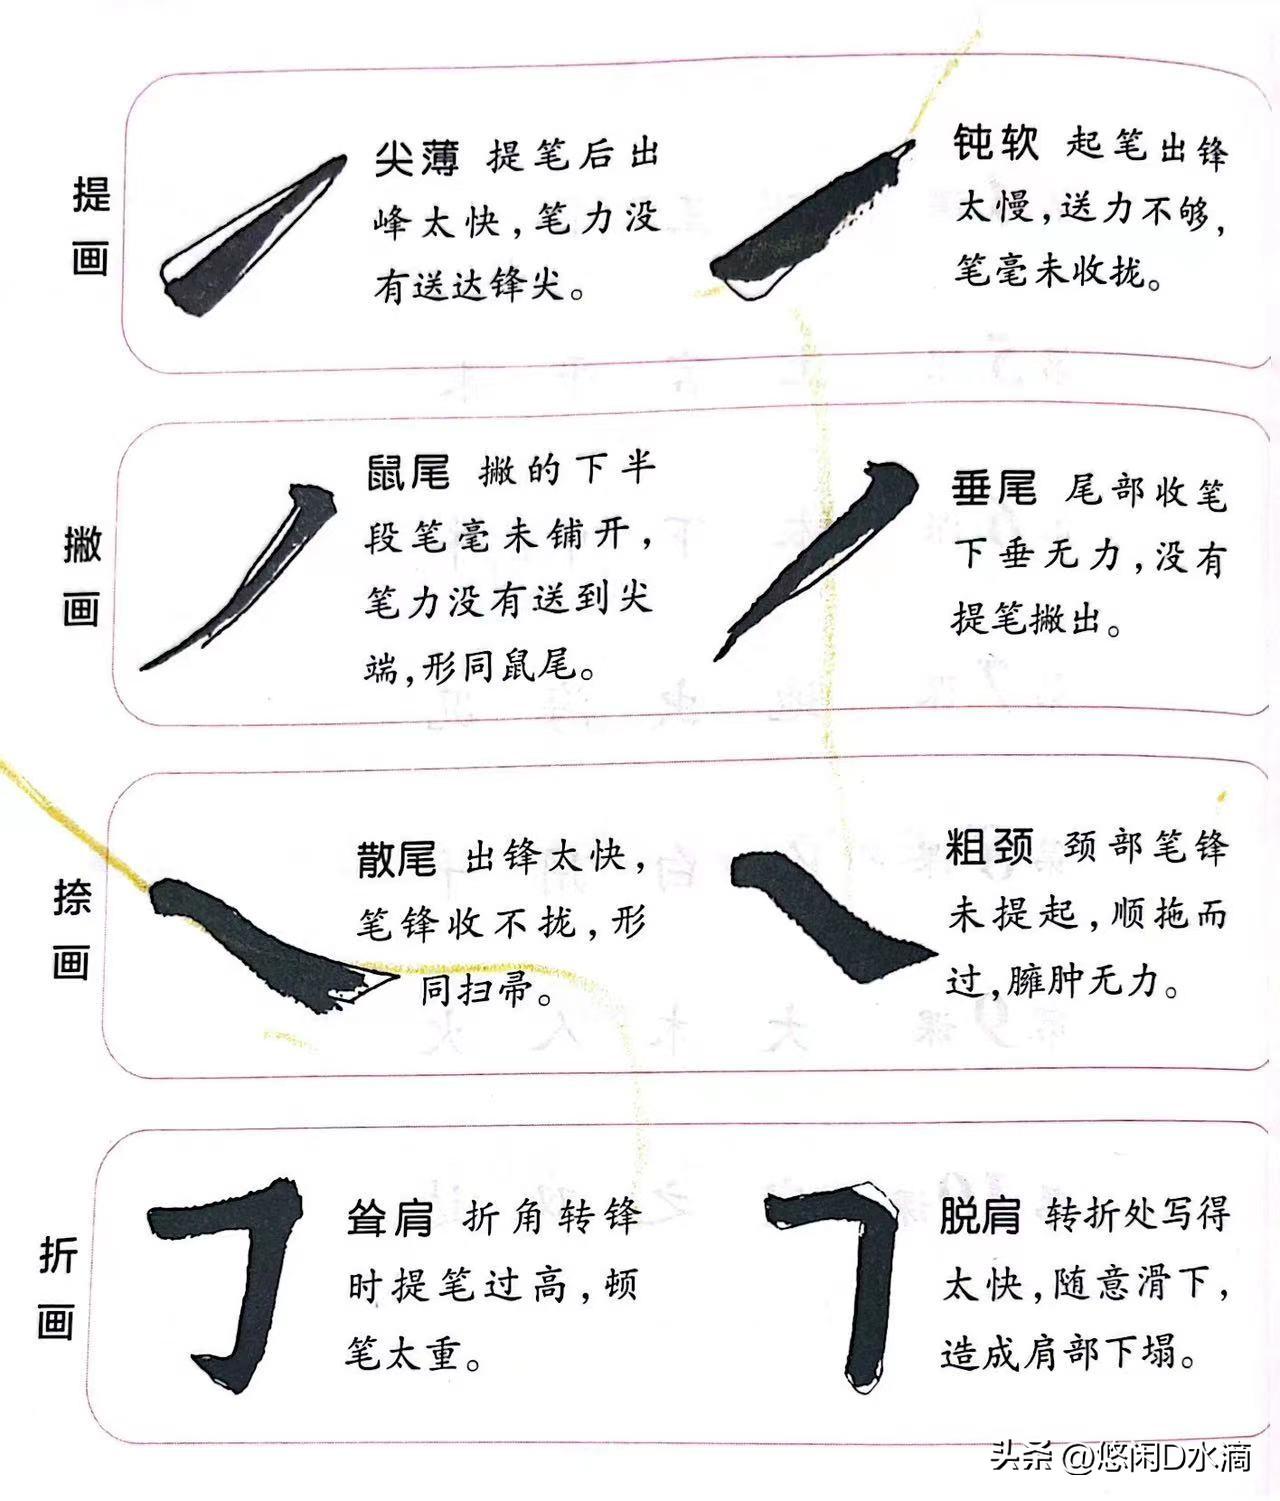 提画
尖薄 提笔后出
峰太快，笔力没
有送达锋尖。
钝软 起笔出锋
太慢，送力不够，
笔毫未收拢。
撇画
鼠尾 撇的下半
段笔毫未铺开，
笔力没有送到尖
端，形同鼠尾。
垂尾 尾部收笔
下垂无力，没有
提笔撇出。
捺画
散尾 出锋太快，
笔锋收不拢，形
同扫帚。
粗颈 颈部笔锋
未提起，顺拖而
过，臃肿无力。
折画
耸肩 折角转锋
时提笔过高，顿
笔太重。
脱肩 转折处写得
太快，随意滑下，
造成肩部下塌。
头条 @悠闲D水滴